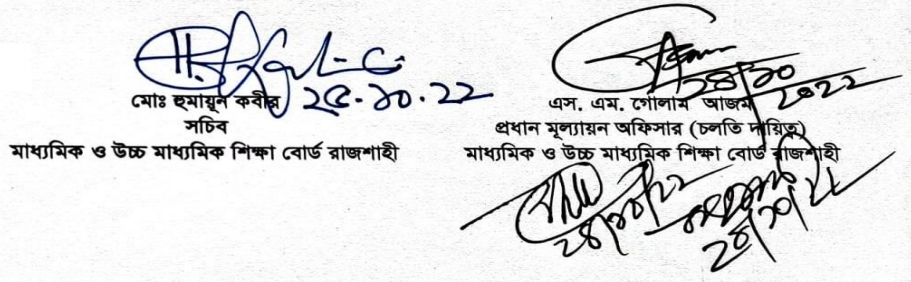 মোঃ হুমায়ুন কবীর ২৫.১০.২২
সচিব
মাধ্যমিক ও উচ্চ মাধ্যমিক শিক্ষা বোর্ড রাজশাহী
২৪/১০
২০২২
এস. এম. গোলাম আজম
প্রধান মূল্যায়ন অফিসার (চলতি দায়িত্ব)
মাধ্যমিক ও উচ্চ মাধ্যমিক শিক্ষা বোর্ড রাজশাহী
২৪/১০/২২
২৪/১০/২২